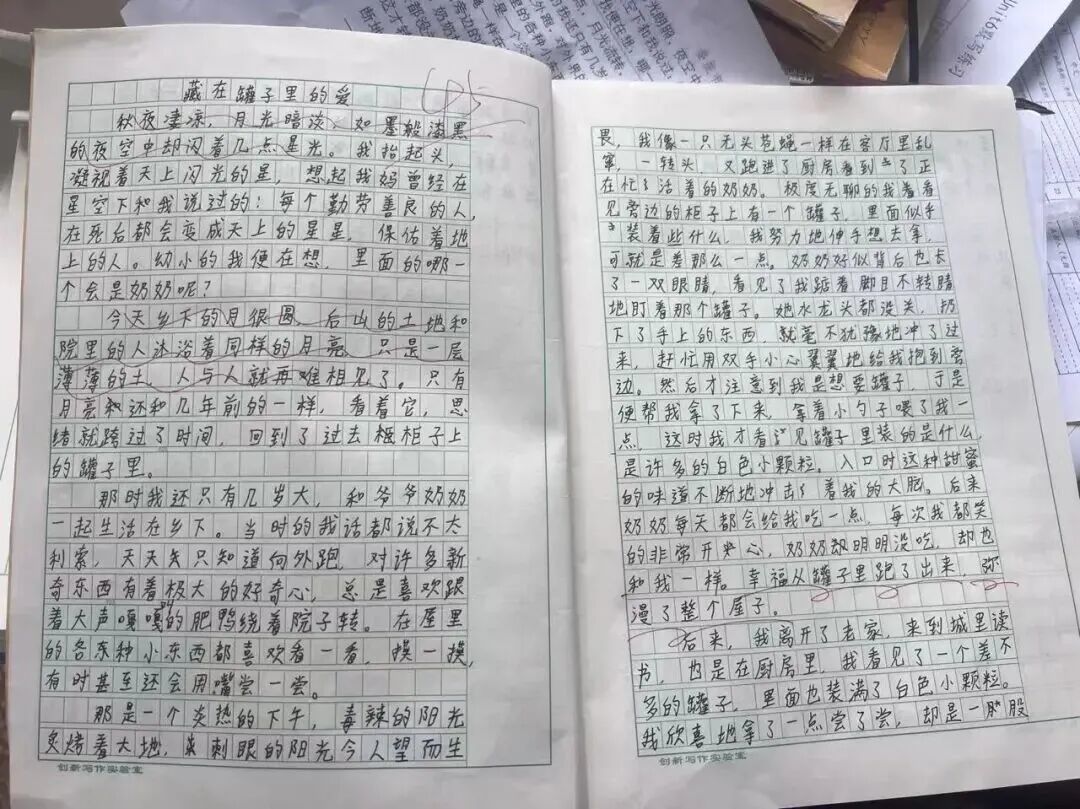 藏在罐子里的爱
秋夜凄凉，月光暗淡，如墨般漆黑
的夜空中却闪着几点星光。我抬起头，
凝视着天上闪光的星，想起我妈曾经在
星空下和我说过的：每个勤劳善良的人，
在死后都会变成天上的星星，保佑着地
上的人。幼小的我便在想，里面的哪一
个会是奶奶呢？
今天乡下的月很圆，后山的土地和
院里的人沐浴着同样的月亮，只是一层
薄薄的土，人与人就再难相见了。只有
月亮和还和几年前的一样，看着它，思
绪就跨过了时间，回到了过去柜子上
的罐子里。
那时我还只有几岁大，和爷爷奶奶
一起生活在乡下。当时的我话都说不大
利索，天天只知道向外跑，对许多新
奇东西有着极大的好奇心，总是喜欢跟
着大声嘎嘎的肥鸭绕着院子转。在屋里
的各种小东西都喜欢看一看，摸一摸，
有时甚至还会用嘴尝一尝。
那是一个炎热的下午，毒辣的阳光
炙烤着大地，刺眼的阳光令人望而生
创新写作实验室
畏，我像一只无头苍蝇一样在客厅里乱
窜，一转头，又跑进了厨房看到了正
在忙活着的奶奶。极度无聊的我看着
见旁边的柜子上有一个罐子，里面似乎
装着些什么，我努力地伸手想去拿，
可就是差那么一点。奶奶好似背后也长
了一双眼睛，看见了我踮着脚目不转睛
地盯着那个罐子。她水龙头都没关，扔
下了手上的东西，就毫不犹豫地冲了过
来，赶忙用双手小心翼翼地给我抱到旁
边。然后才注意到我是想要罐子，于是
便帮我拿了下来，拿着小勺子喂了我一
点，这时我才看见罐子里装的是什么，
是许多的白色小颗粒。入口时这种甜蜜
的味道不断地冲击着我的大脑。后来
奶奶每天都会给我吃一点，每次我都笑
的非常开心，奶奶明明没吃，却也
和我一样。幸福从罐子里跑了出来，弥
漫了整个屋子。
后来，我离开了老家，来到城里读
书，也是在厨房里，我看见了一个差不
多的罐子，里面也装满了白色小颗粒。
我欣喜地拿了一点尝了尝，却是一股
创新写作实验室